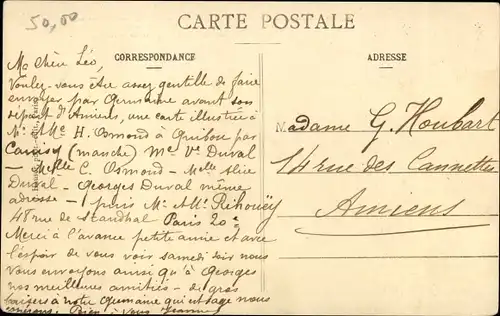 50,00
CARTE POSTALE
CORRESPONDANCE
ADRESSE
Ma chère Léo,
Voulez-vous être assez gentille de faire
envoyer par Germaine avant son
départ d'Amiens, une carte illustrée à
Mr Me H. Osmond à Quibou par
Canisy (manche) Me Ve Duval
— Melle C. Osmond — Melle Alice
Duval — Georges Duval même
adresse — puis Mr Me Rihouëy
48 rue de Stendhal Paris 20e
Merci à l'avance petite amie et avec
l'espoir de vous voir samedi soir nous
vous envoyons ainsi qu'à Georges
nos meilleures amitiés — de gros
baisers à notre Germaine qui est sage nous
Bien à vous Jeanne
Madame G. Houbart
14 rue des Cannettes
Amiens